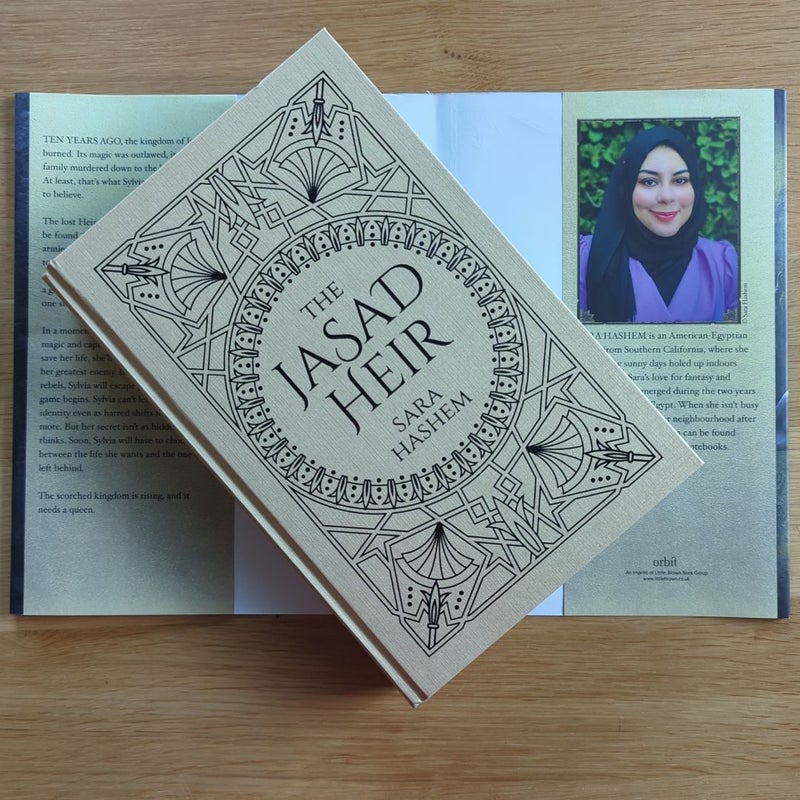 TEN YEARS AGO, the kingdom of
burned. Its magic was outlawed,
family murdered down to the
At least, that's what Sylvi
to believe.
The lost Heir
be found
armie
to
a g
one s
In a momen
magic and cap
save her life, she'll
her greatest enemy.
rebels, Sylvia will escape
game begins. Sylvia can't le
identity even as hatred shifts
more. But her secret isn't as hidd
thinks. Soon, Sylvia will have to choo
between the life she wants and the one
left behind.
The scorched kingdom is rising, and it
needs a queen.
THE
JASAD
HEIR
SARA
HASHEM
© Sara Hashem
A HASHEM is an American-Egyptian
from Southern California, where she
y sunny days holed up indoors
Sara's love for fantasy and
merged during the two years
Egypt. When she isn't busy
neighbourhood after
e can be found
otebooks.
orbit
An imprint of Little, Brown Book Group
www.littlebrown.co.uk